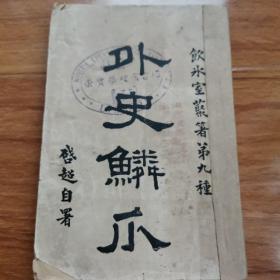 飲冰室叢著第九種
外史鱗爪
啓超自署